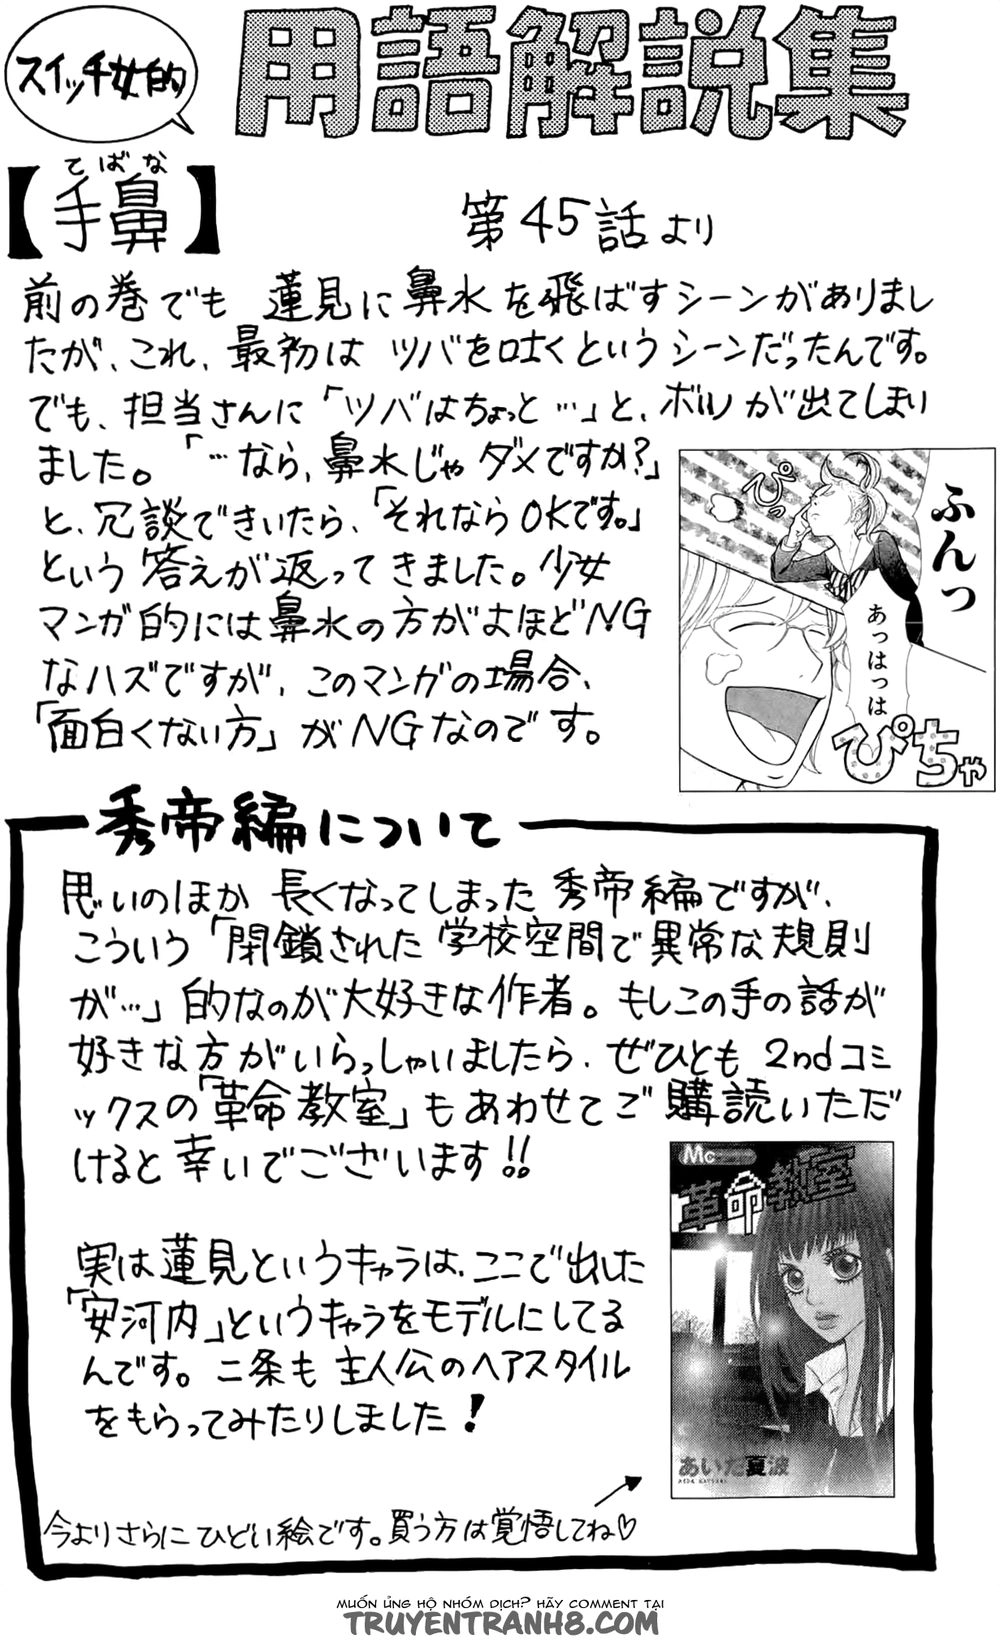 スイッチ女的
用語解説集
てばな
【手鼻】
第45話より
前の巻でも 蓮見に鼻水を飛ばすシーンがありまし
たが、これ、最初は ツバを吐くというシーンだったんです。
でも、担当さんに「ツバはちょっと…」と、ボツが出てしまい
ました。「…なら、鼻水じゃダメですか?」
と、冗談できいたら、「それならOKです。」
という答えが返ってきました。少女
マンガ的には鼻水の方がよほどNG
なハズですが、このマンガの場合、
「面白くない方」がNGなのです。
ふんっ
ぴっ
あっはっは
ぴちゃ
秀帝編について
思いのほか 長くなってしまった 秀帝編ですが、
こういう「閉鎖された 学校空間で異常な規則
が…」的なのが大好きな作者。もしこの手の話が
好きな方がいらっしゃいましたら、ぜひとも 2ndコミ
ックスの「革命教室」もあわせてご購読いただ
けると幸いでございます!!
Mc
革命教室
実は蓮見というキャラは、ここで出した
「安河内」というキャラをモデルにしてる
んです。二条も 主人公のヘアスタイル
をもらってみたりしました!
あいだ夏波
今よりさらにひどい絵です。買う方は覚悟してね♡
MUỐN ỦNG HỘ NHÓM DỊCH? HÃY COMMENT TẠI
TRUYENTRANH8.COM